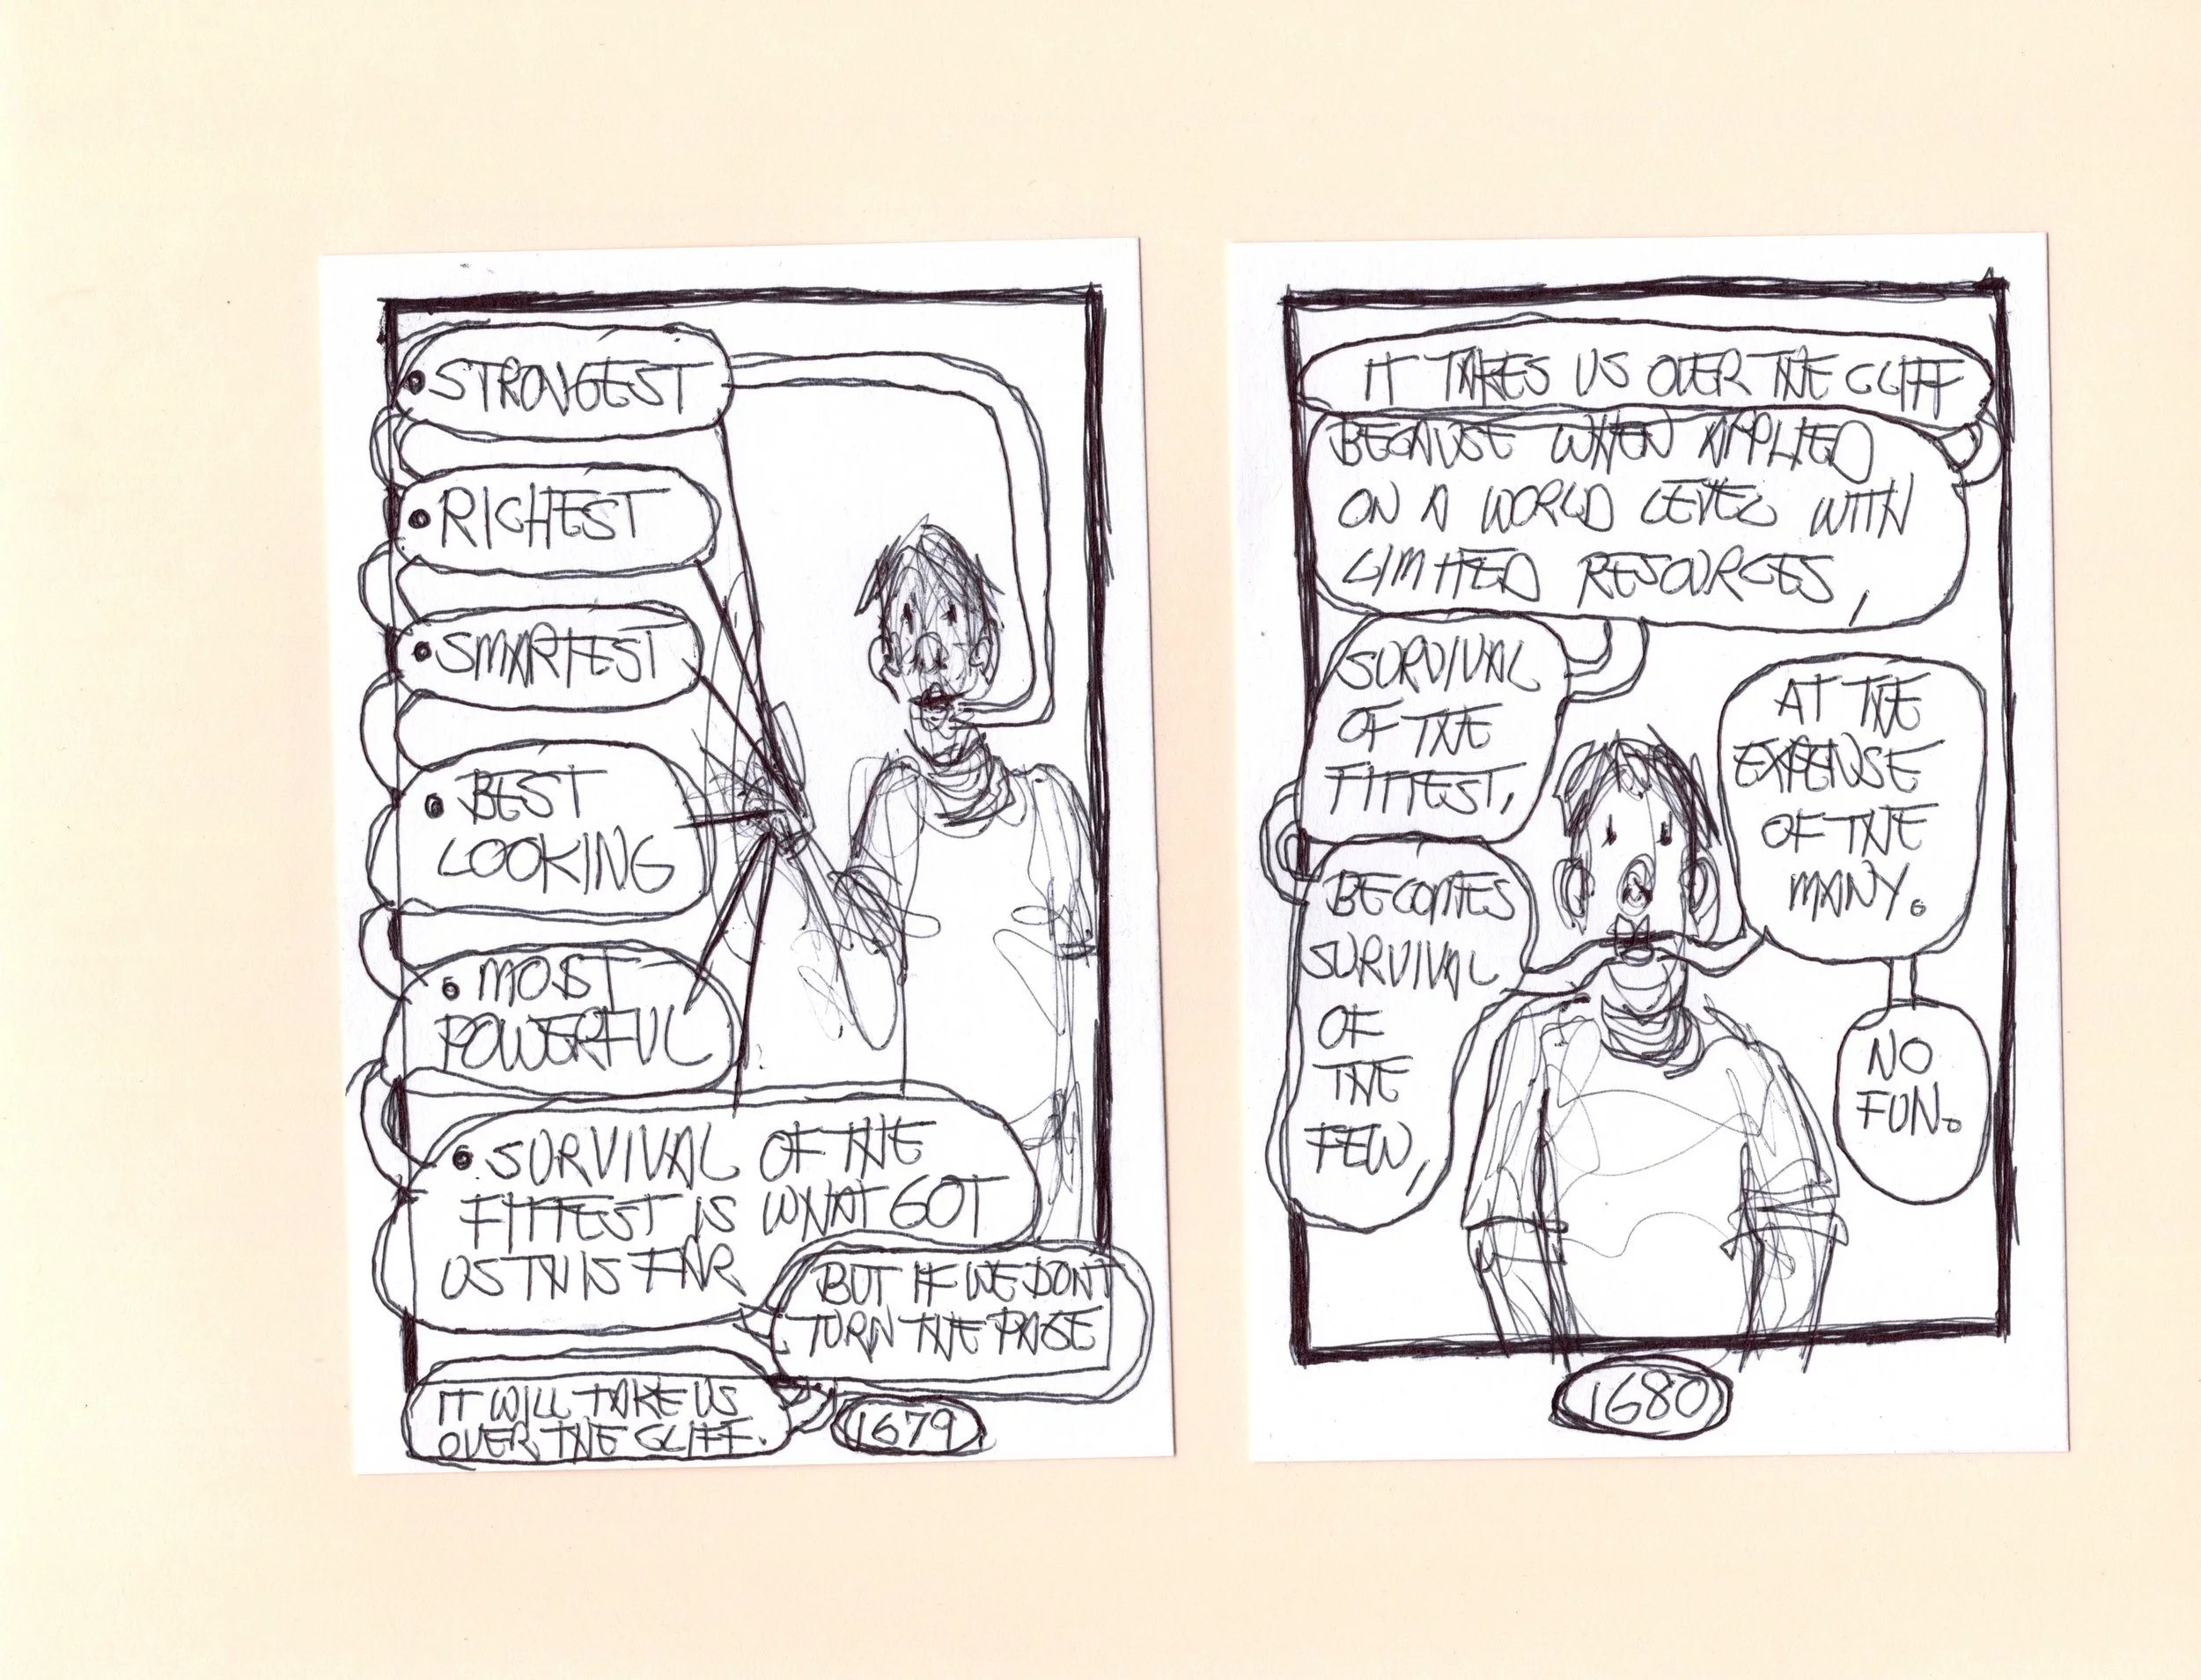 • STRONGEST
• RICHEST
• SMARTEST
• BEST
LOOKING
• MOST
POWERFUL
• SURVIVAL OF THE
FITTEST IS WHAT GOT
US THIS FAR
BUT IF WE DONT
TURN THE PAGE
IT WILL TAKE US
OVER THE CLIFF.
1679
IT TAKES US OVER THE CLIFF
BECAUSE WHEN APPLIED
ON A WORLD LEVEL WITH
LIMITED RESOURCES,
SURVIVAL
OF THE
FITTEST,
BECOMES
SURVIVAL
OF
THE
FEW,
AT THE
EXPENSE
OF THE
MANY.
NO
FUN.
1680